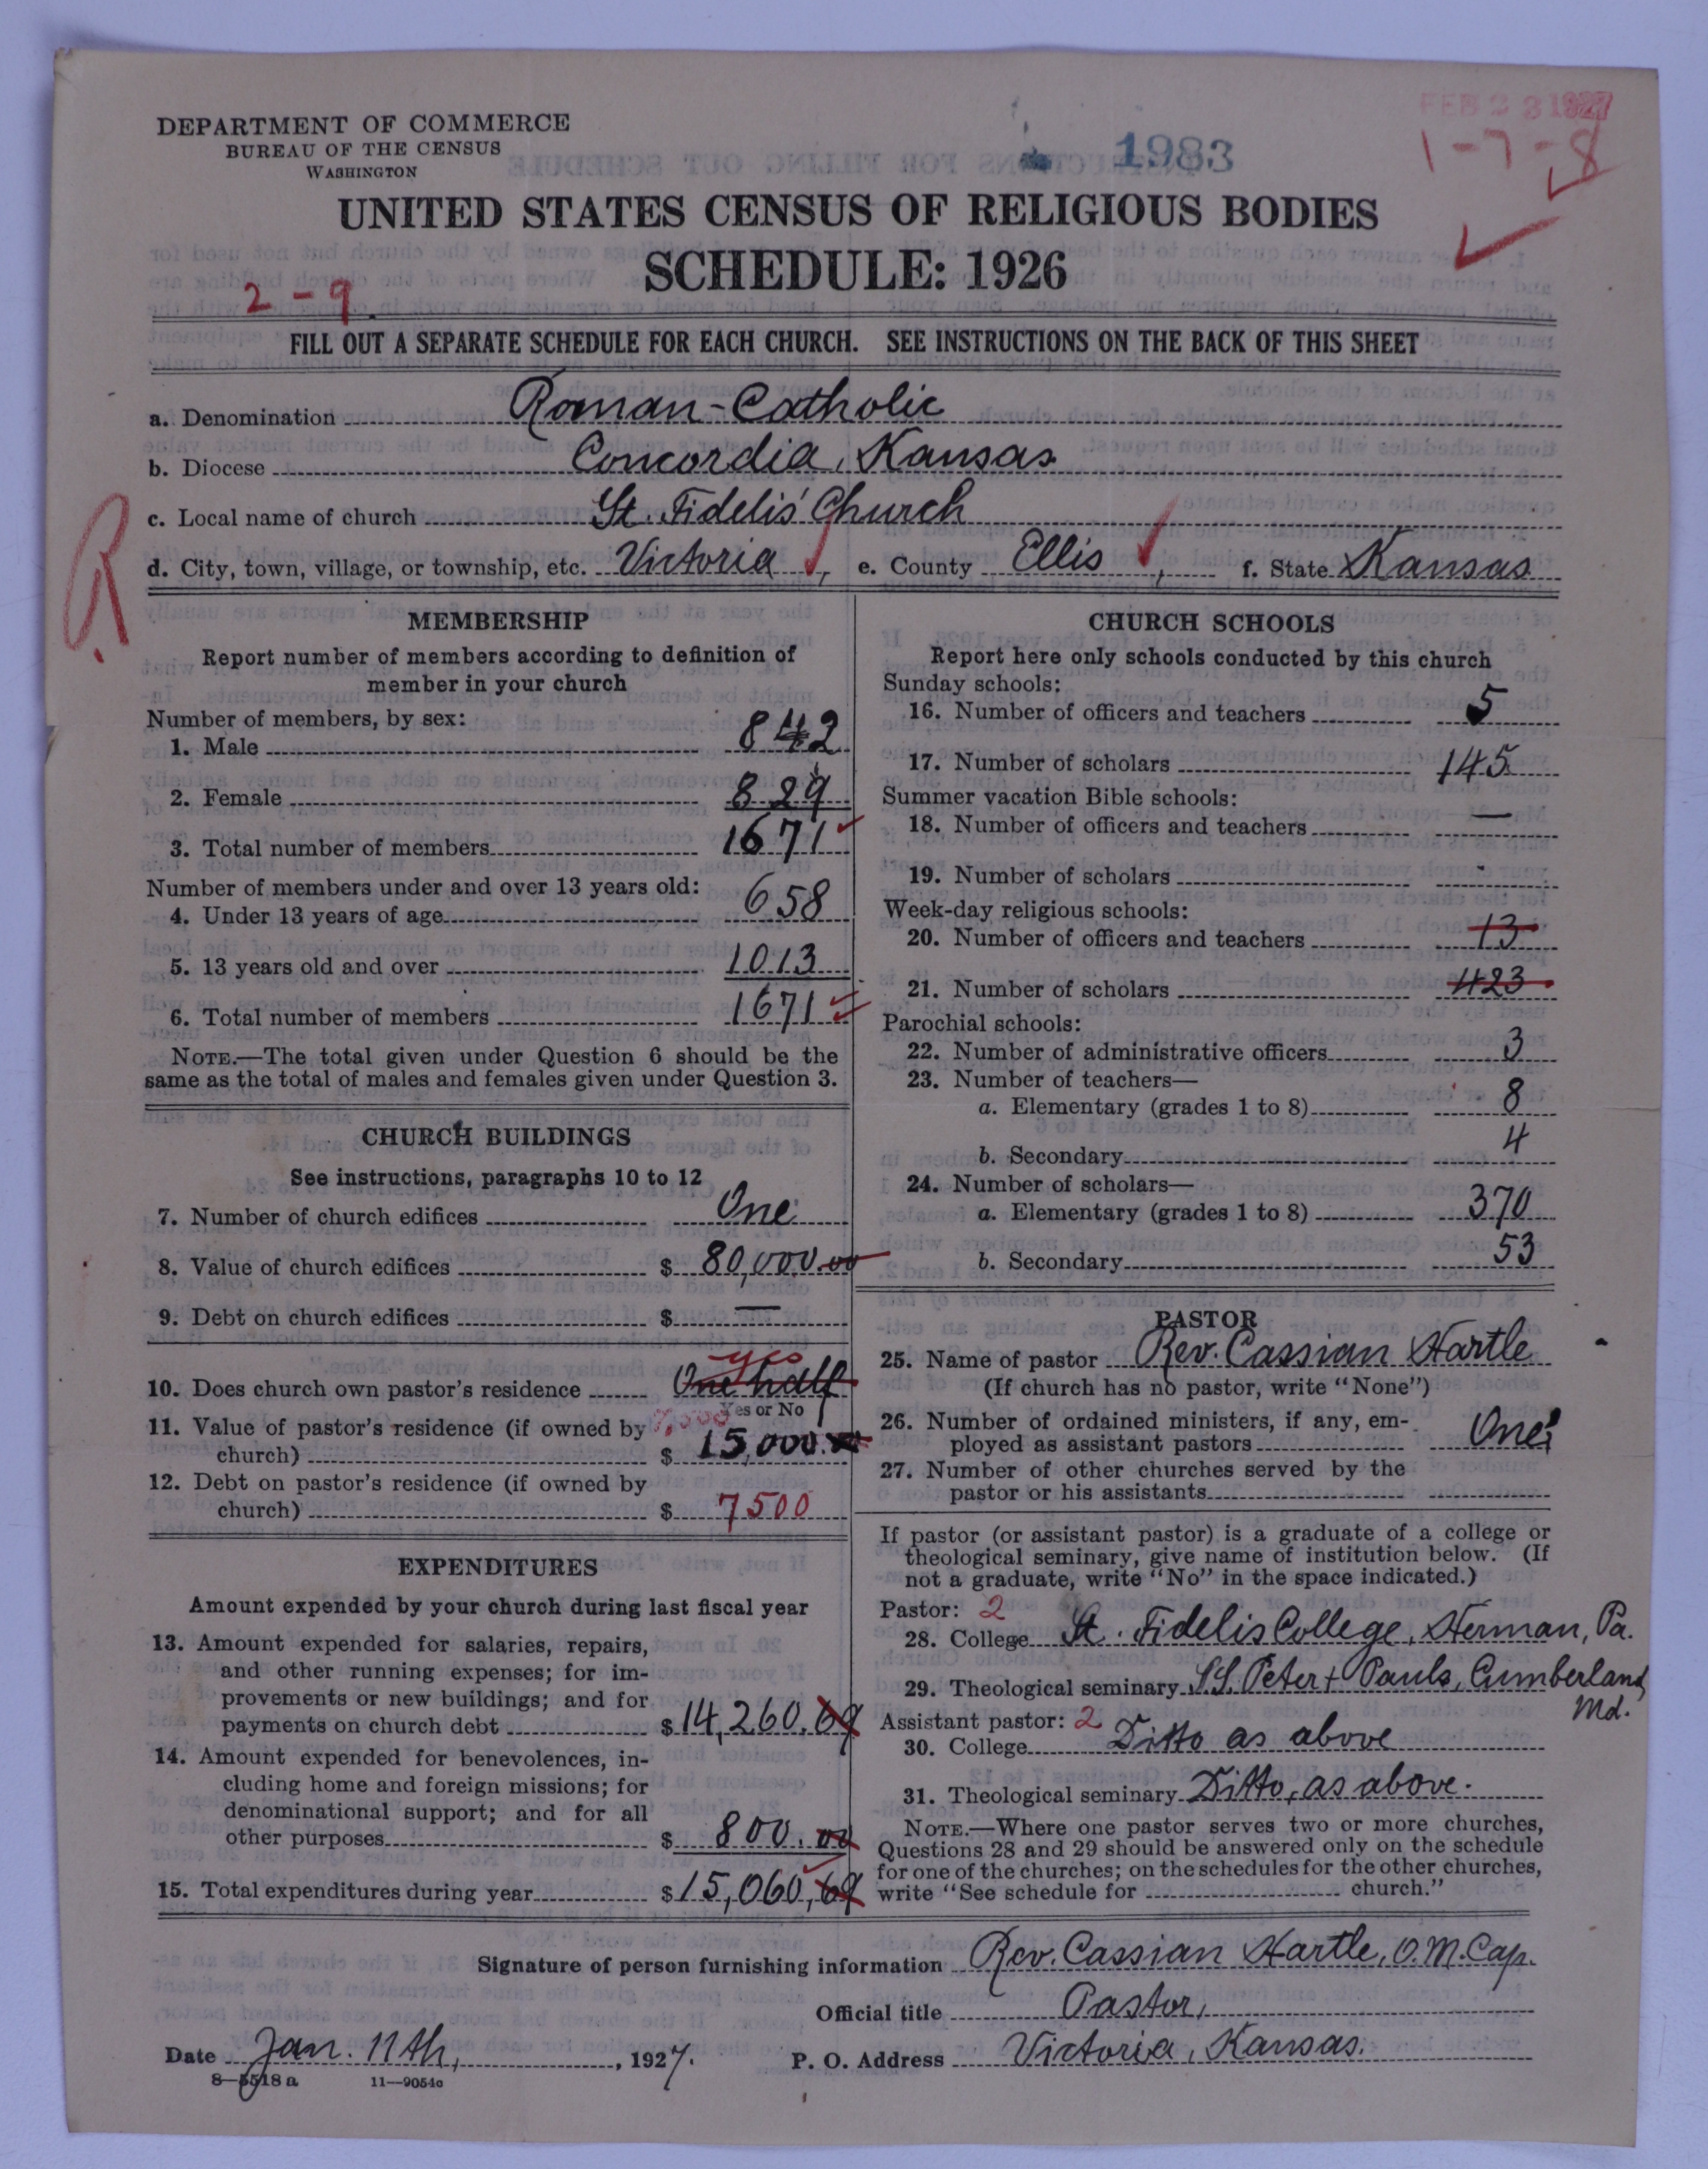 FEB 23 1927
DEPARTMENT OF COMMERCE
BUREAU OF THE CENSUS
WASHINGTON
1983
1-7-8
UNITED STATES CENSUS OF RELIGIOUS BODIES
SCHEDULE: 1926
2-9
FILL OUT A SEPARATE SCHEDULE FOR EACH CHURCH. SEE INSTRUCTIONS ON THE BACK OF THIS SHEET
a. Denomination Roman-Catholic
b. Diocese Concordia, Kansas
c. Local name of church St. Fidelis' Church
d. City, town, village, or township, etc. Victoria, e. County Ellis, f. State Kansas
R
MEMBERSHIP
Report number of members according to definition of
member in your church
Number of members, by sex:
1. Male 842
2. Female 829
3. Total number of members 1671
Number of members under and over 13 years old:
4. Under 13 years of age 658
5. 13 years old and over 1013
6. Total number of members 1671
NOTE.—The total given under Question 6 should be the
same as the total of males and females given under Question 3.
CHURCH BUILDINGS
See instructions, paragraphs 10 to 12
7. Number of church edifices One
8. Value of church edifices $ 80,000.00
9. Debt on church edifices $ —
yes
10. Does church own pastor's residence One half
Yes or No
11. Value of pastor's residence (if owned by 7,500
church) $ 15,000.
12. Debt on pastor's residence (if owned by
church) $ 7500
EXPENDITURES
Amount expended by your church during last fiscal year
13. Amount expended for salaries, repairs,
and other running expenses; for im-
provements or new buildings; and for
payments on church debt $ 14,260.69
14. Amount expended for benevolences, in-
cluding home and foreign missions; for
denominational support; and for all
other purposes $ 800.00
15. Total expenditures during year $ 15,060.69
CHURCH SCHOOLS
Report here only schools conducted by this church
Sunday schools:
16. Number of officers and teachers 5
17. Number of scholars 145
Summer vacation Bible schools:
18. Number of officers and teachers —
19. Number of scholars -
Week-day religious schools:
20. Number of officers and teachers 13
21. Number of scholars 423
Parochial schools:
22. Number of administrative officers 3
23. Number of teachers—
a. Elementary (grades 1 to 8) 8
b. Secondary 4
24. Number of scholars—
a. Elementary (grades 1 to 8) 370
b. Secondary 53
PASTOR
25. Name of pastor Rev. Cassian Hartle
(If church has no pastor, write "None")
26. Number of ordained ministers, if any, em-
ployed as assistant pastors One
27. Number of other churches served by the
pastor or his assistants
If pastor (or assistant pastor) is a graduate of a college or
theological seminary, give name of institution below. (If
not a graduate, write "No" in the space indicated.)
Pastor: 2
28. College St. Fidelis College, Herman, Pa.
29. Theological seminary SS. Peter + Pauls, Cumberland,
Md.
Assistant pastor: 2
30. College Ditto as above
31. Theological seminary Ditto, as above.
NOTE.—Where one pastor serves two or more churches,
Questions 28 and 29 should be answered only on the schedule
for one of the churches; on the schedules for the other churches,
write "See schedule for church."
Signature of person furnishing information Rev. Cassian Hartle, O.M.Cap.
Official title Pastor,
Date Jan. 11th, , 1927. P. O. Address Victoria, Kansas.
8—5518 a 11—9054c